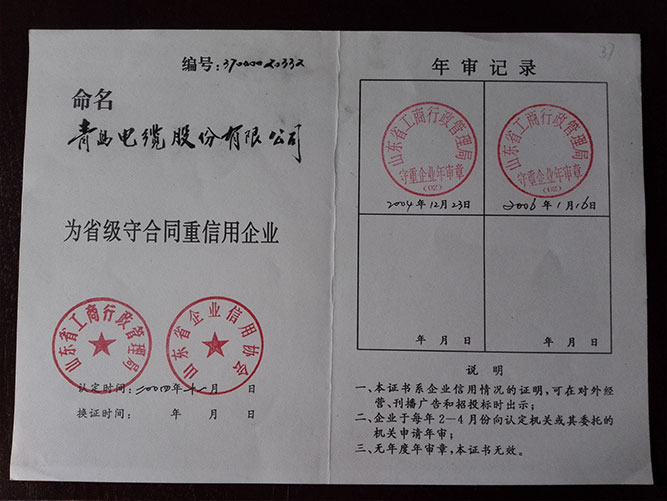 编号:37000020332
命名
青岛电缆股份有限公司
为省级守合同重信用企业
山东省工商行政管理局
山东省企业信用协会
认定时间:二〇〇四年十一月 日
换证时间: 年 月 日
37
年审记录
山东省工商行政管理局
守重企业年审章
(02)
2004年12月23日
山东省工商行政管理局
守重企业年审章
(02)
2006年1月16日
年 月 日
年 月 日
说 明
一、本证书系企业信用情况的证明,可在对外经
营、刊播广告和招投标时出示;
二、企业于每年2—4月份向认定机关或其委托的
机关申请年审;
三、无年度年审章,本证书无效。